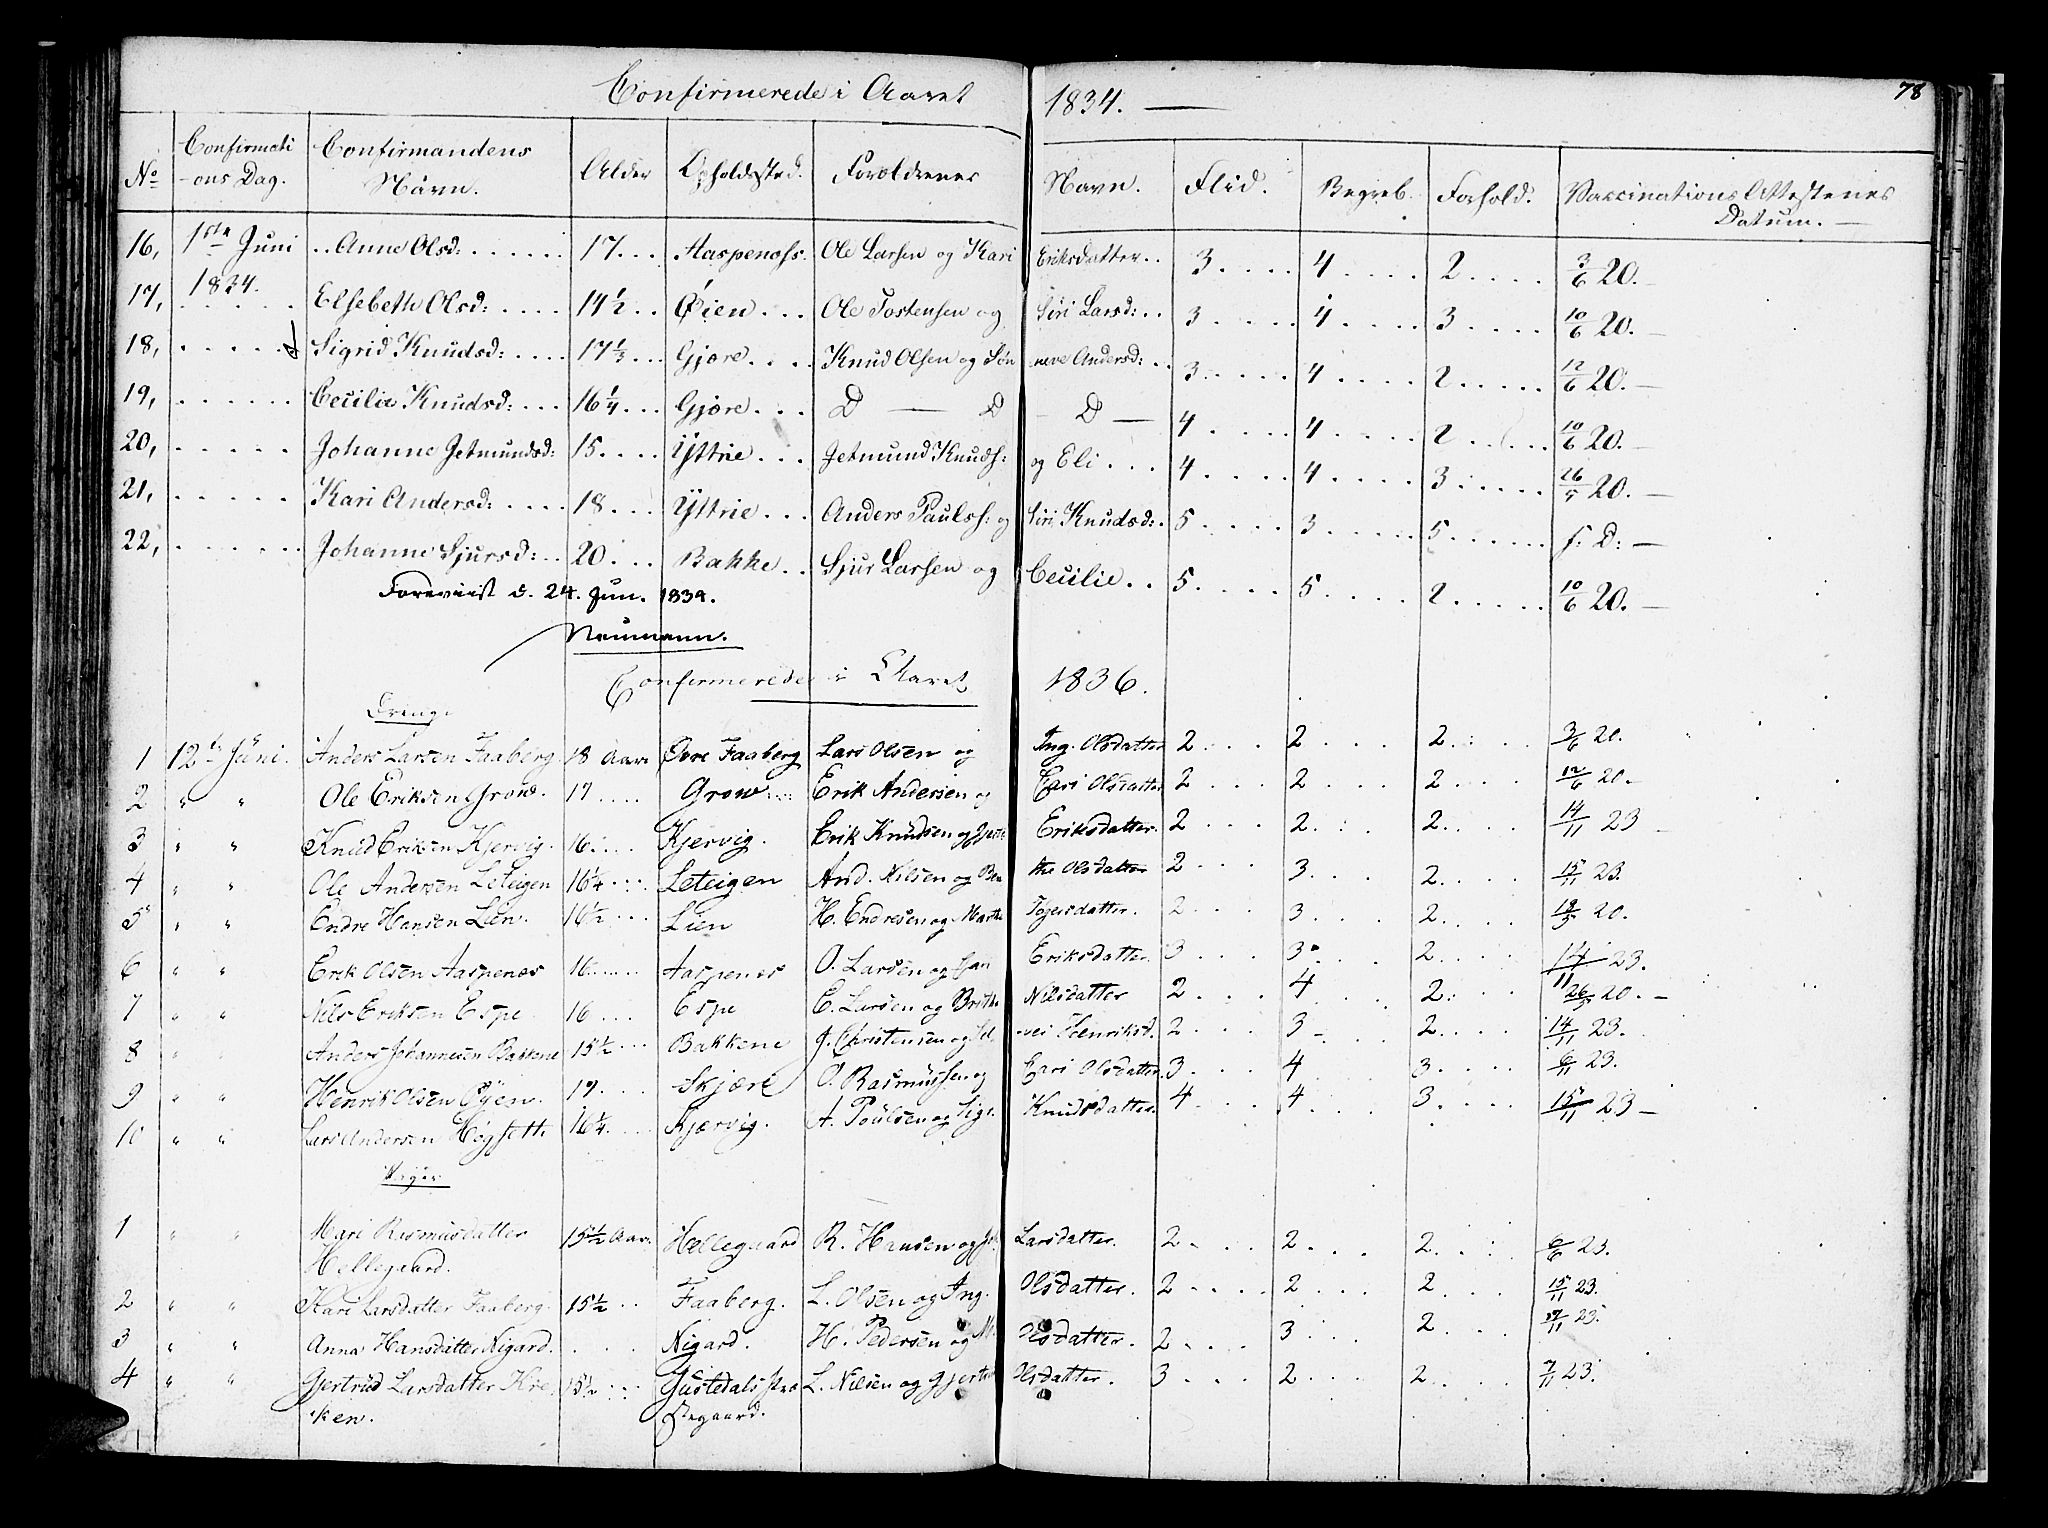 78
Confirmerede i Aaret 1834. —
No Confirmati-ons Dag. Confirmandens Navn. Alder Opholdssted. Forældrenes Navn. Flid. Begreb. Forhold. Vaccinations Attestenes Datum. —
16, 1ste Juni .. Anne Olsd: ...... 17... Aaspenæss. Ole Larsen og Kari Eriksdatter.. 3.... 4.... 2.... 3/6 20. —
17, 1834. Elsebeth Olsd: .... 14 1/2.. Øien... Ole Tostensen og Siri Larsd: .. 3.... 4.... 3.... 10/6 20. —
18, ..... Sigrid Knudsd: .... 17 1/2... Gjøre.... Knud Olsen og Søn neve Andersd: .. 3.... 4.... 2..... 12/6 20. —
19, ...... Cecilie Knudsd: ... 16 1/4... Gjøre... D — D — D — 4.... 4.... 2..... 10/6 20. —
20, ...... Johanne Jetmundsd: 15.... Yttrie... Jetmund Knuds: og Eli... 4.... 4.... 3..... 26/5 20. —
21, ..... Kari Andersd: .... 18... Yttrie... Anders Pauls: og Siri Knudsd: . 5.... 3.... 5..... f: D: —
22, ...... Johanne Sjursd: .. 20... Bakke.. Sjur Larsen og Cecilie.. 5.... 5.... 2..... 10/6 20. —
Foreviist d. 24. Jun. 1834.
Neumann.
Confirmerede i Aaret 1836.
Drenge
1 12te Juni. Anders Larsen Faaberg 18 Aar Øvre Faaberg Lars Olsen og Ing. Olsdatter 2... 2... 2... 3/6 20.
2 " " Ole Eriksen Grow. 17.... Grow.... Erik Andersen og Kari Olsdatter 2... 2... 2... 12/6 20. -
3 " " Knud Eriksen Kjervig. 16.... Kjervig. Erik Knudsen og Eriksdatter. 2... 2... 2.... 14/11 23 -
4 " " Ole Andersen Leteigen 16 1/4.... Leteigen And. Nilsen og Ben the Olsdatter 2... 3... 2.... 15/11 23.
5 " " Endre Hansen Lien. 16 1/2... Lien H. Endresen og Marthe datter. 2... 3... 2.... 19/5 20.
6 " " Erik Olsen Aaspenæs 16..... Aaspenæs O. Larsen og Eriksdatter. 3... 3... 2.... 14/11 23.
7 " " Nils Eriksen Espe. 16.... Espe E. Larsen og Brithe Nilsdatter 2... 4... 2.... 26/5 20. -
8 " " Anders Johannesen Bakkene 15 1/2... Bakkene J. Christensen og Sel -vei Henriksd. 2... 3... 2.... 14/11 23.
9 " " Henrik Olsen Øyen. 19.... Skjøre O. Rasmussen og Kari Olsdatter. 3... 4... 3.... 6/11 23.
10 " " Lars Andersen Høgsette 16 1/4.... Kjærvig. A. Poulsen og Sigr. Knudsdatter. 4... 4... 3.... 15/11 23 -
Piger
1 " " Mari Rasmusdatter 15 1/2 Aar. Hellegaard R. Hansen og Larsdatter. 2.... 2... 2.... 6/6 23.
Hellegaard.
2 " " Kari Larsdatter Faaberg. 15 1/2.. Faaberg. L. Olsen og Ing. Olsdatter. 2.... 2... 2.... 15/11 23.
3 " " Anna Hansdatter Nigard. .... Nigard. H. Pedersen og M. Olsdatter. 2.... 3... 2.... /11 23.
4 " " Gjertrud Larsdatter Kre 15 1/2... Justedals Præ L. Nilsen og Gjertrud Olsdatter. 3.... 2... 2.... 7/11 23.
ken. stegaard.